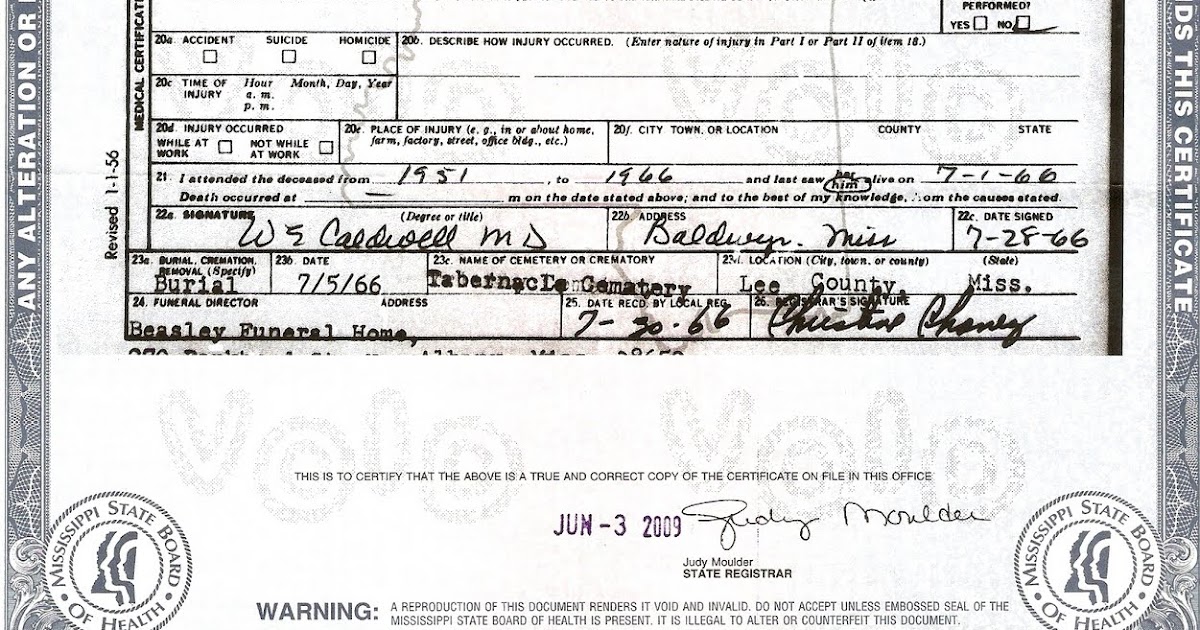 PERFORMED?
YES NO
20a. ACCIDENT SUICIDE HOMICIDE
20b. DESCRIBE HOW INJURY OCCURRED. (Enter nature of injury in Part I or Part II of item 18.)
20c TIME OF INJURY Hour a. m. p. m. Month, Day, Year
20d. INJURY OCCURRED
WHILE AT WORK NOT WHILE AT WORK
20e. PLACE OF INJURY (e. g., in or about home, farm, factory, street, office bldg., etc.)
20f. CITY TOWN, OR LOCATION COUNTY STATE
21. I attended the deceased from 1951, to 1966 and last saw her him alive on 7-1-66
Death occurred at — m on the date stated above; and to the best of my knowledge, from the causes stated.
22a. SIGNATURE (Degree or title)
W E Caldwell MD
22b. ADDRESS
Baldwyn. Miss
22c. DATE SIGNED
7-28-66
23a. BURIAL, CREMATION, REMOVAL (Specify)
Burial
23b. DATE
7/5/66
23c. NAME OF CEMETERY OR CREMATORY
Tabernacle Cematery
23d. LOCATION (City, town, or county) (State)
Lee County, Miss.
24. FUNERAL DIRECTOR ADDRESS
Beasley Funeral Home,
25. DATE RECD. BY LOCAL REG.
7-30-66
26. REGISTRAR'S SIGNATURE
Christine Chaney
MEDICAL CERTIFICATI
Revised 1-1-56
ANY ALTERATION OR
DS THIS CERTIFICATE
Void Void
Void Void
THIS IS TO CERTIFY THAT THE ABOVE IS A TRUE AND CORRECT COPY OF THE CERTIFICATE ON FILE IN THIS OFFICE
JUN -3 2009
Judy Moulder
Judy Moulder
STATE REGISTRAR
WARNING: A REPRODUCTION OF THIS DOCUMENT RENDERS IT VOID AND INVALID. DO NOT ACCEPT UNLESS EMBOSSED SEAL OF THE
MISSISSIPPI STATE BOARD OF HEALTH IS PRESENT. IT IS ILLEGAL TO ALTER OR COUNTERFEIT THIS DOCUMENT.
MISSISSIPPI STATE BOARD OF HEALTH
MISSISSIPPI STATE BOARD OF HEALTH